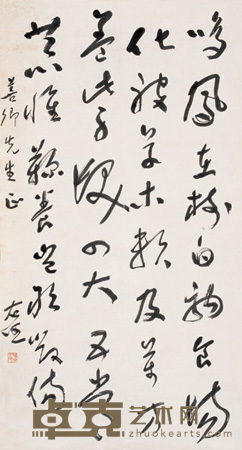 鸣凤在树白驹食场
化被草木赖及万方
盖此身发四大五常
恭惟鞠养岂敢毁伤
善卿先生正
右任
卓克艺术网
zhuokearts.com